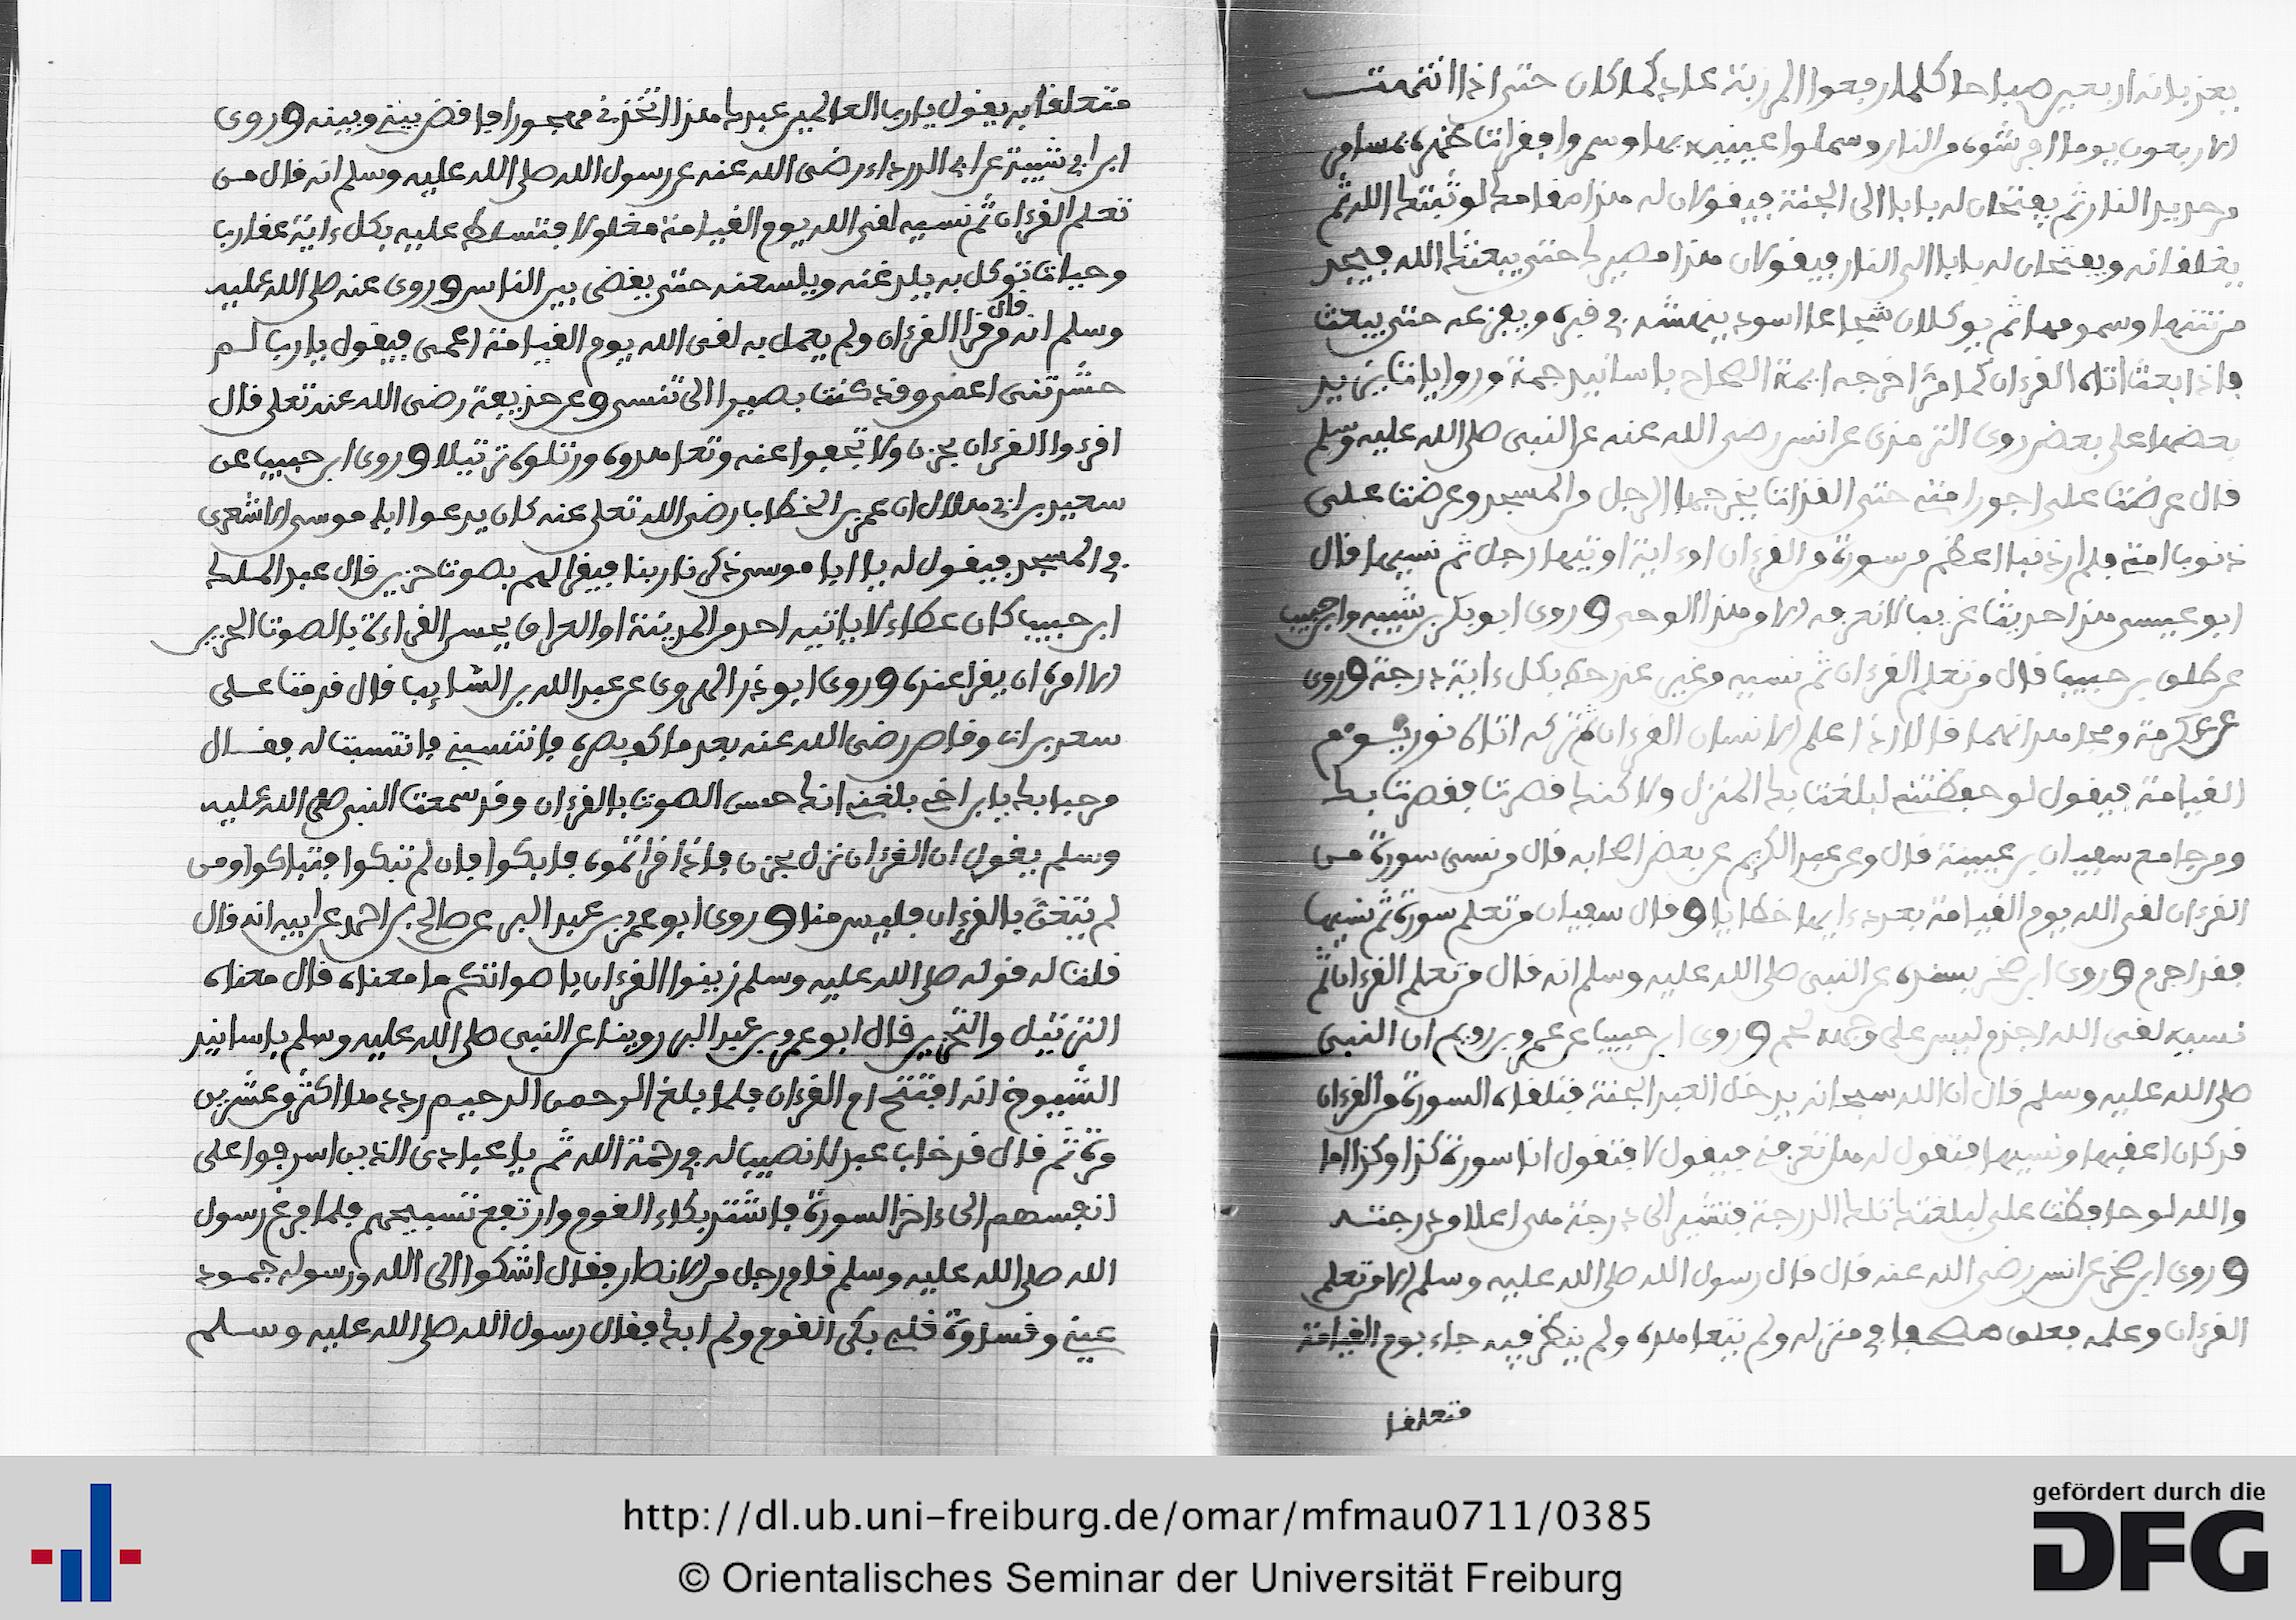 يعذبانه اربعين صباحا كلما رفعوا المرزبة عاد كما كان حتى اذا انتهت
الاربعون يوما افرشوه من النار وسملوا عينيه بها وسمروا
من حديد النار ثم يفتحان له بابا الى الجنة فيقولان له هذا مقامك لو ثبتك الله ثم
يغلقانه ويفتحان له بابا الى النار فيقولان هذا مصيرك حتى يبعثك الله فيجد
من نتنها وسمومها ثم يوكلان شجاعا اسود ينهشه في قبره ويفزعه حتى يبعث
فاذا بعث اتاه القرءان كما مر اخرجه ايمة الصحاح باسانيد جمة وروايات يزيد
بعضها على بعض روى الترمذى عن انس رضى الله عنه عن النبى صلى الله عليه وسلم
قال عرضت على اجور امتى حتى القذاة يخرجها الرجل من المسجد وعرضت على
ذنوب امتى فلم ار ذنبا اعظم من سورة من القرءان او ءاية اوتيها رجل ثم نسيها قال
ابو عيسى هذا حديث غريب لا نعرفه الا من هذا الوجه و روى ابو بكر بن شيبه وابن حبيب
عن طلق بن حبيب قال من تعلم القرءان ثم نسيه من غير عذر حط بكل ءاية درجة و روى
عن عكرمة ومجاهد انهما قالا اذا علم الانسان القرءان ثم تركه اتاه نور يوم
القيامة فيقول لو حفظتنى لبلغت بك المنزل ولاكنك قصرت فقصرت بك
ومن جامع سفيان بن عيينة قال وعن عبد الكريم عن بعض اصحابه قال من نسى سورة من
القرءان لقى الله يوم القيامة بعدد ءايها خطايا و قال سفيان من تعلم سورة ثم نسيها
فقد اجرم و روى ابن صخر بسنده عن النبى صلى الله عليه وسلم انه قال من تعلم القرءان ثم
نسيه لقى الله اجذم ليس على وجهه لحم و روى ابن حبيب عن عمرو بن رويم ان النبى
صلى الله عليه وسلم قال ان الله سبحانه يدخل العبد الجنة فتلقاه السورة من القرءان
قد كان اعفيها ونسيها فتقول له هل تعرفنى فيقول لا فتقول انا سورة كذا وكذا اما
والله لو حافظت على لبلغتك تلك الدرجة فتشير الى درجة هى اعلا من درجته
و روى ابن صخر عن انس رضى الله عنه قال قال رسول الله صلى الله عليه وسلم الا من تعلم
القرءان وعلمه فعلق مصحفا في منزله ولم يتعاهده ولم ينظر فيه جاء يوم القيامة
متعلقا
متعلقا به يقول يا رب العالمين عبدك هذا اتخذنى مهجورا فاقض بينى وبينه و روى
ابن ابى شيبة عن ابى الدرداء رضى الله عنه عن رسول الله صلى الله عليه وسلم انه قال من
تعلم القرءان ثم نسيه لقى الله يوم القيامة مغلولا فتسلط عليه بكل ءاية عقارب
وحيات توكل به يلدغنه ويلسعنه حتى يقضى بين الناس و روى عنه صلى الله عليه
وسلم انه قال من قرا القرءان ولم يعمل به لقى الله يوم القيامة اعمى فيقول يا رب لم
حشرتنى اعمى وقد كنت بصيرا الى تنسى و عن حذيفة رضى الله عنه تعلى قال
اقرءوا القرءان بحزن ولا تجفوا عنه وتعاهدوه ورتلوه ترتيلا و روى ابن حبيب عن
سعيد بن ابى هلال ان عمر بن الخطاب رضى الله تعلى عنه كان يدعوا ابا موسى الاشعرى
في المسجد فيقول له يا ابا موسى ذكرنا ربنا فيقرا لهم بصوت حزين قال عبد الملك
ابن حبيب كان عطاء لا ياتيه احد من المدينة او العراق يحسن القراءة بالصوت الحزين
الا امره ان يقرا عنده و روى ابو ذر الهروى عن عبد الله بن السايب قال قدمت على
سعد بن ابى وقاص رضى الله عنه بعد ما كف بصره فانتسبنى فانتسبت له فقال
مرحبا بك يا ابن اخى بلغنى انك حسن الصوت بالقرءان وقد سمعت النبى صلى الله عليه
وسلم يقول ان القرءان نزل بحزن فاذا قراتموه فابكوا فان لم تبكوا فتباكوا ومن
لم يتغن بالقرءان فليس منا و روى ابو عمر بن عبد البر عن صالح بن احمد عن ابيه انه قال
قلت له قوله صلى الله عليه وسلم زينوا القرءان باصواتكم ما معناه قال معناه
الترتيل والتحزين قال ابو عمر بن عبد البر روينا عن النبى صلى الله عليه وسلم باسانيد
الشيوخ انه افتتح ام القرءان فلما بلغ الرحمن الرحيم رددها اكثر من عشرين
مرة ثم قال قد خاب عبد لا نصيب له في رحمة الله ثم يا عبادى الذين اسرفوا على
انفسهم الى ءاخر السورة فاشتد بكاء القوم وارتفع تسبيحهم فلما فرغ رسول
الله صلى الله عليه وسلم قام رجل من الانصار فقال اشكوا الى الله ورسوله جمود
عينى وقساوة قلبى بكى القوم ولم ابك فقال رسول الله صلى الله عليه وسلم
http://dl.ub.uni-freiburg.de/omar/mfmau0711/0385
© Orientalisches Seminar der Universität Freiburg
gefördert durch die
DFG